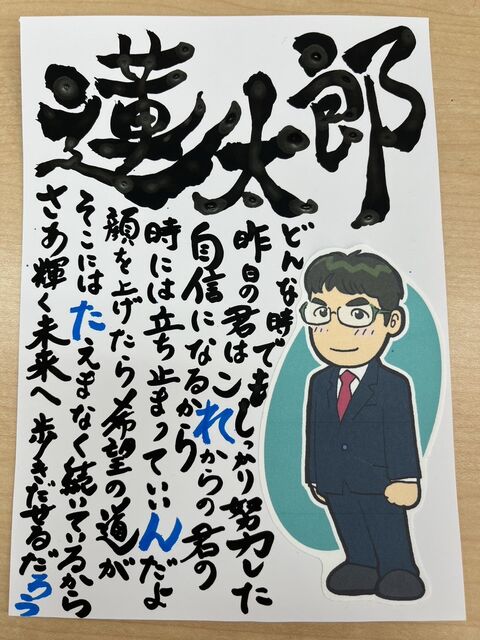 蓮太郎
どんな時でもしっかり努力した
昨日の君はこれからの君の
自信になるから
時には立ち止まっていいんだよ
顔を上げたら希望の道が
そこにはたえまなく続いているから
さあ輝く未来へ歩きだせるだろう